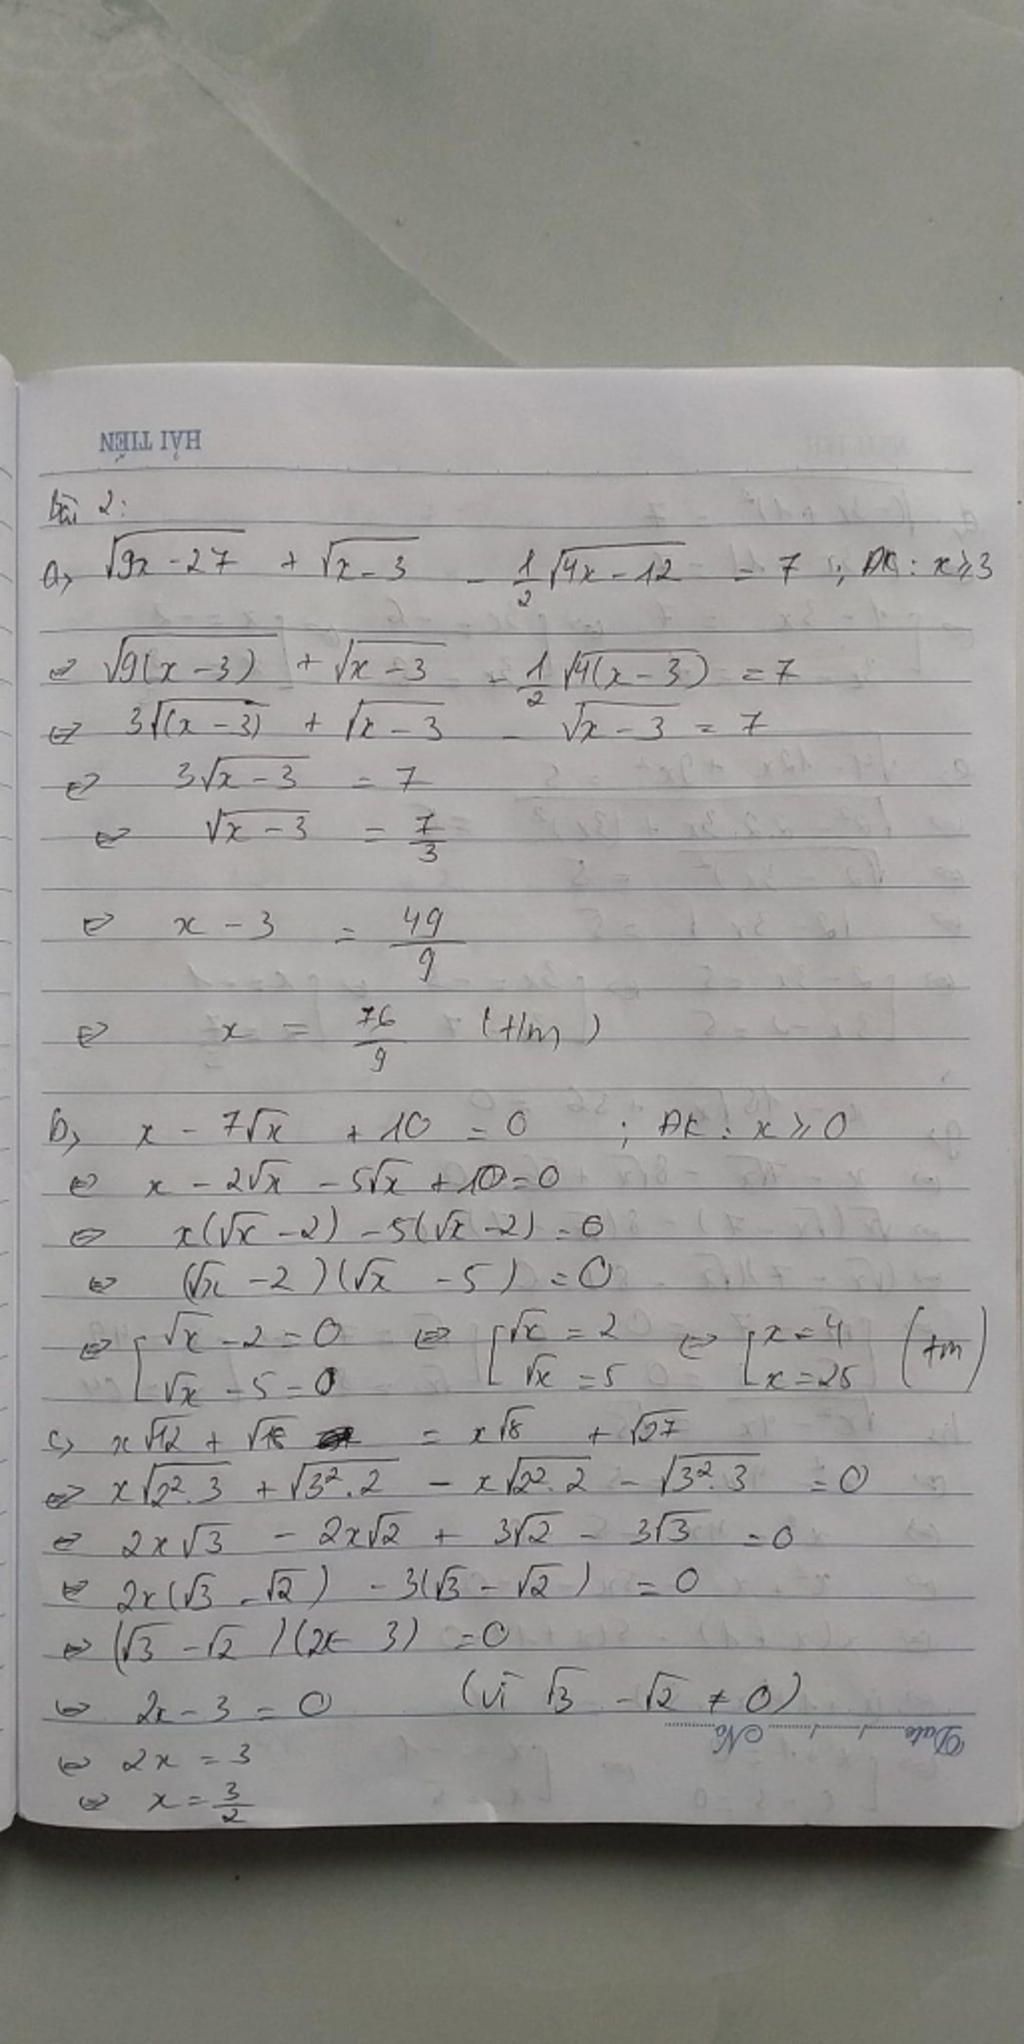 HẢI TIẾN
Bài 2:
a, √(9x-27) + √(x-3) - 1/2 √(4x-12) = 7 ; ĐK: x ≥ 3
⇔ √(9(x-3)) + √(x-3) - 1/2 √(4(x-3)) = 7
⇔ 3√(x-3) + √(x-3) - √(x-3) = 7
⇔ 3√(x-3) = 7
⇔ √(x-3) = 7/3
⇔ x - 3 = 49/9
⇔ x = 76/9 (t/m)
b, x - 7√x + 10 = 0 ; ĐK: x ≥ 0
⇔ x - 2√x - 5√x + 10 = 0
⇔ x(√x - 2) - 5(√x - 2) = 0
⇔ (√x - 2)(√x - 5) = 0
⇔ [√x - 2 = 0 ⇔ [√x = 2 ⇔ [x = 4 (tm)
√x - 5 = 0 √x = 5 x = 25
c, x√12 + √18 = x√8 + √27
⇔ x√(2².3) + √(3².2) - x√(2².2) - √(3².3) = 0
⇔ 2x√3 - 2x√2 + 3√2 - 3√3 = 0
⇔ 2x(√3 - √2) - 3(√3 - √2) = 0
⇔ (√3 - √2)(2x - 3) = 0
⇔ 2x - 3 = 0 (vì √3 - √2 ≠ 0)
Date ....../....../...... No ............
⇔ 2x = 3
⇔ x = 3/2